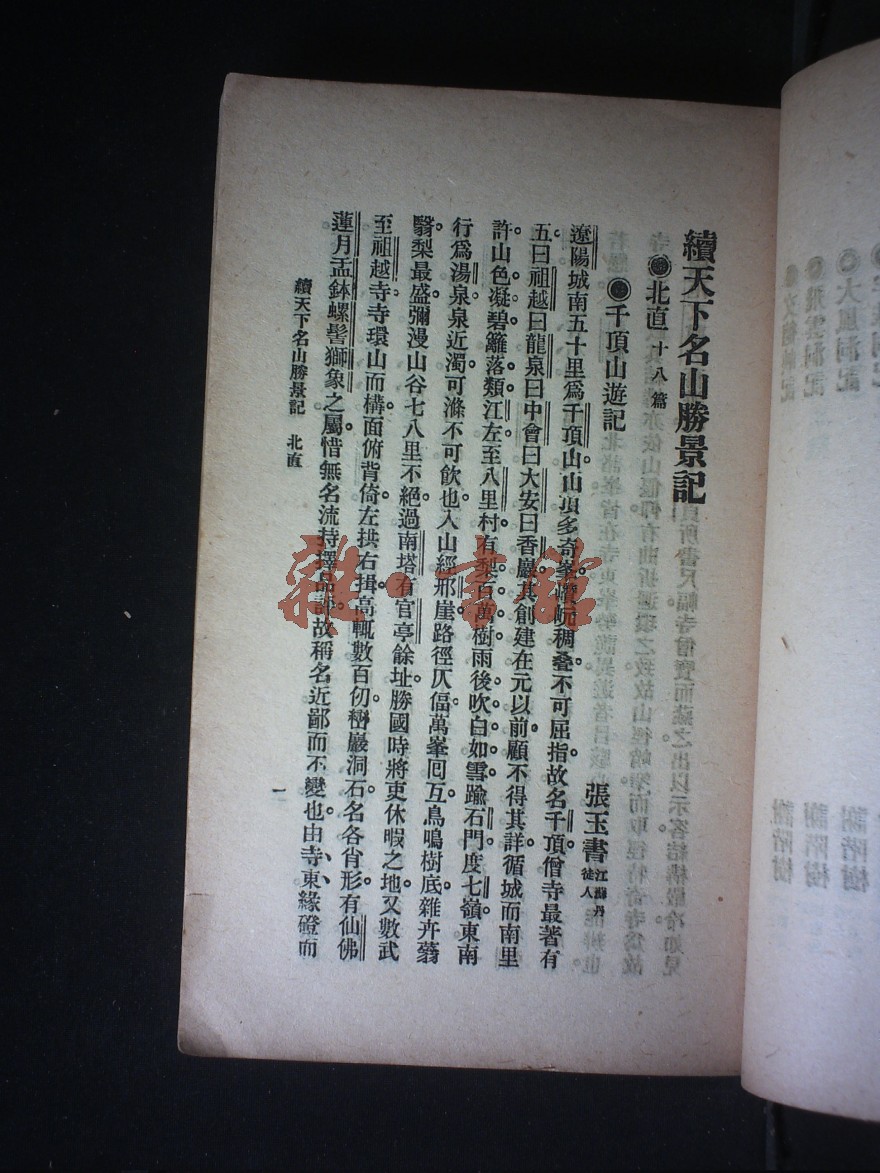 續天下名山勝景記
北直 十八篇
千頂山遊記
張玉書 江蘇丹徒人
遼陽城南五十里爲千頂山山頂多奇峯巑岏稠叠不可屈指故名千頂僧寺最著有
五曰祖越曰龍泉曰中會曰大安曰香巖其創建在元以前顧不得其詳循城而南里
許山色凝碧籬落類江左至八里村有梨百萬樹雨後吹白如雪踰石門度七嶺東南
行爲湯泉泉近濁可滌不可飮也入山經邢崖路徑仄偪萬峯囘互鳥鳴樹底雜卉蓊
翳梨最盛彌漫山谷七八里不絕過南塔有官亭餘址勝國時將吏休暇之地又數武
至祖越寺寺環山而構面俯背倚左拱右揖高輒數百仞巒巖洞石名各肖形有仙佛
蓮月盂鉢螺髻獅象之屬惜無名流持擇品故稱名近鄙而不變也由寺東緣磴而
續天下名山勝景記 北直
一
雜·書館
大風洞記
飛雲洞記
謝階樹
謝階樹
謝階樹